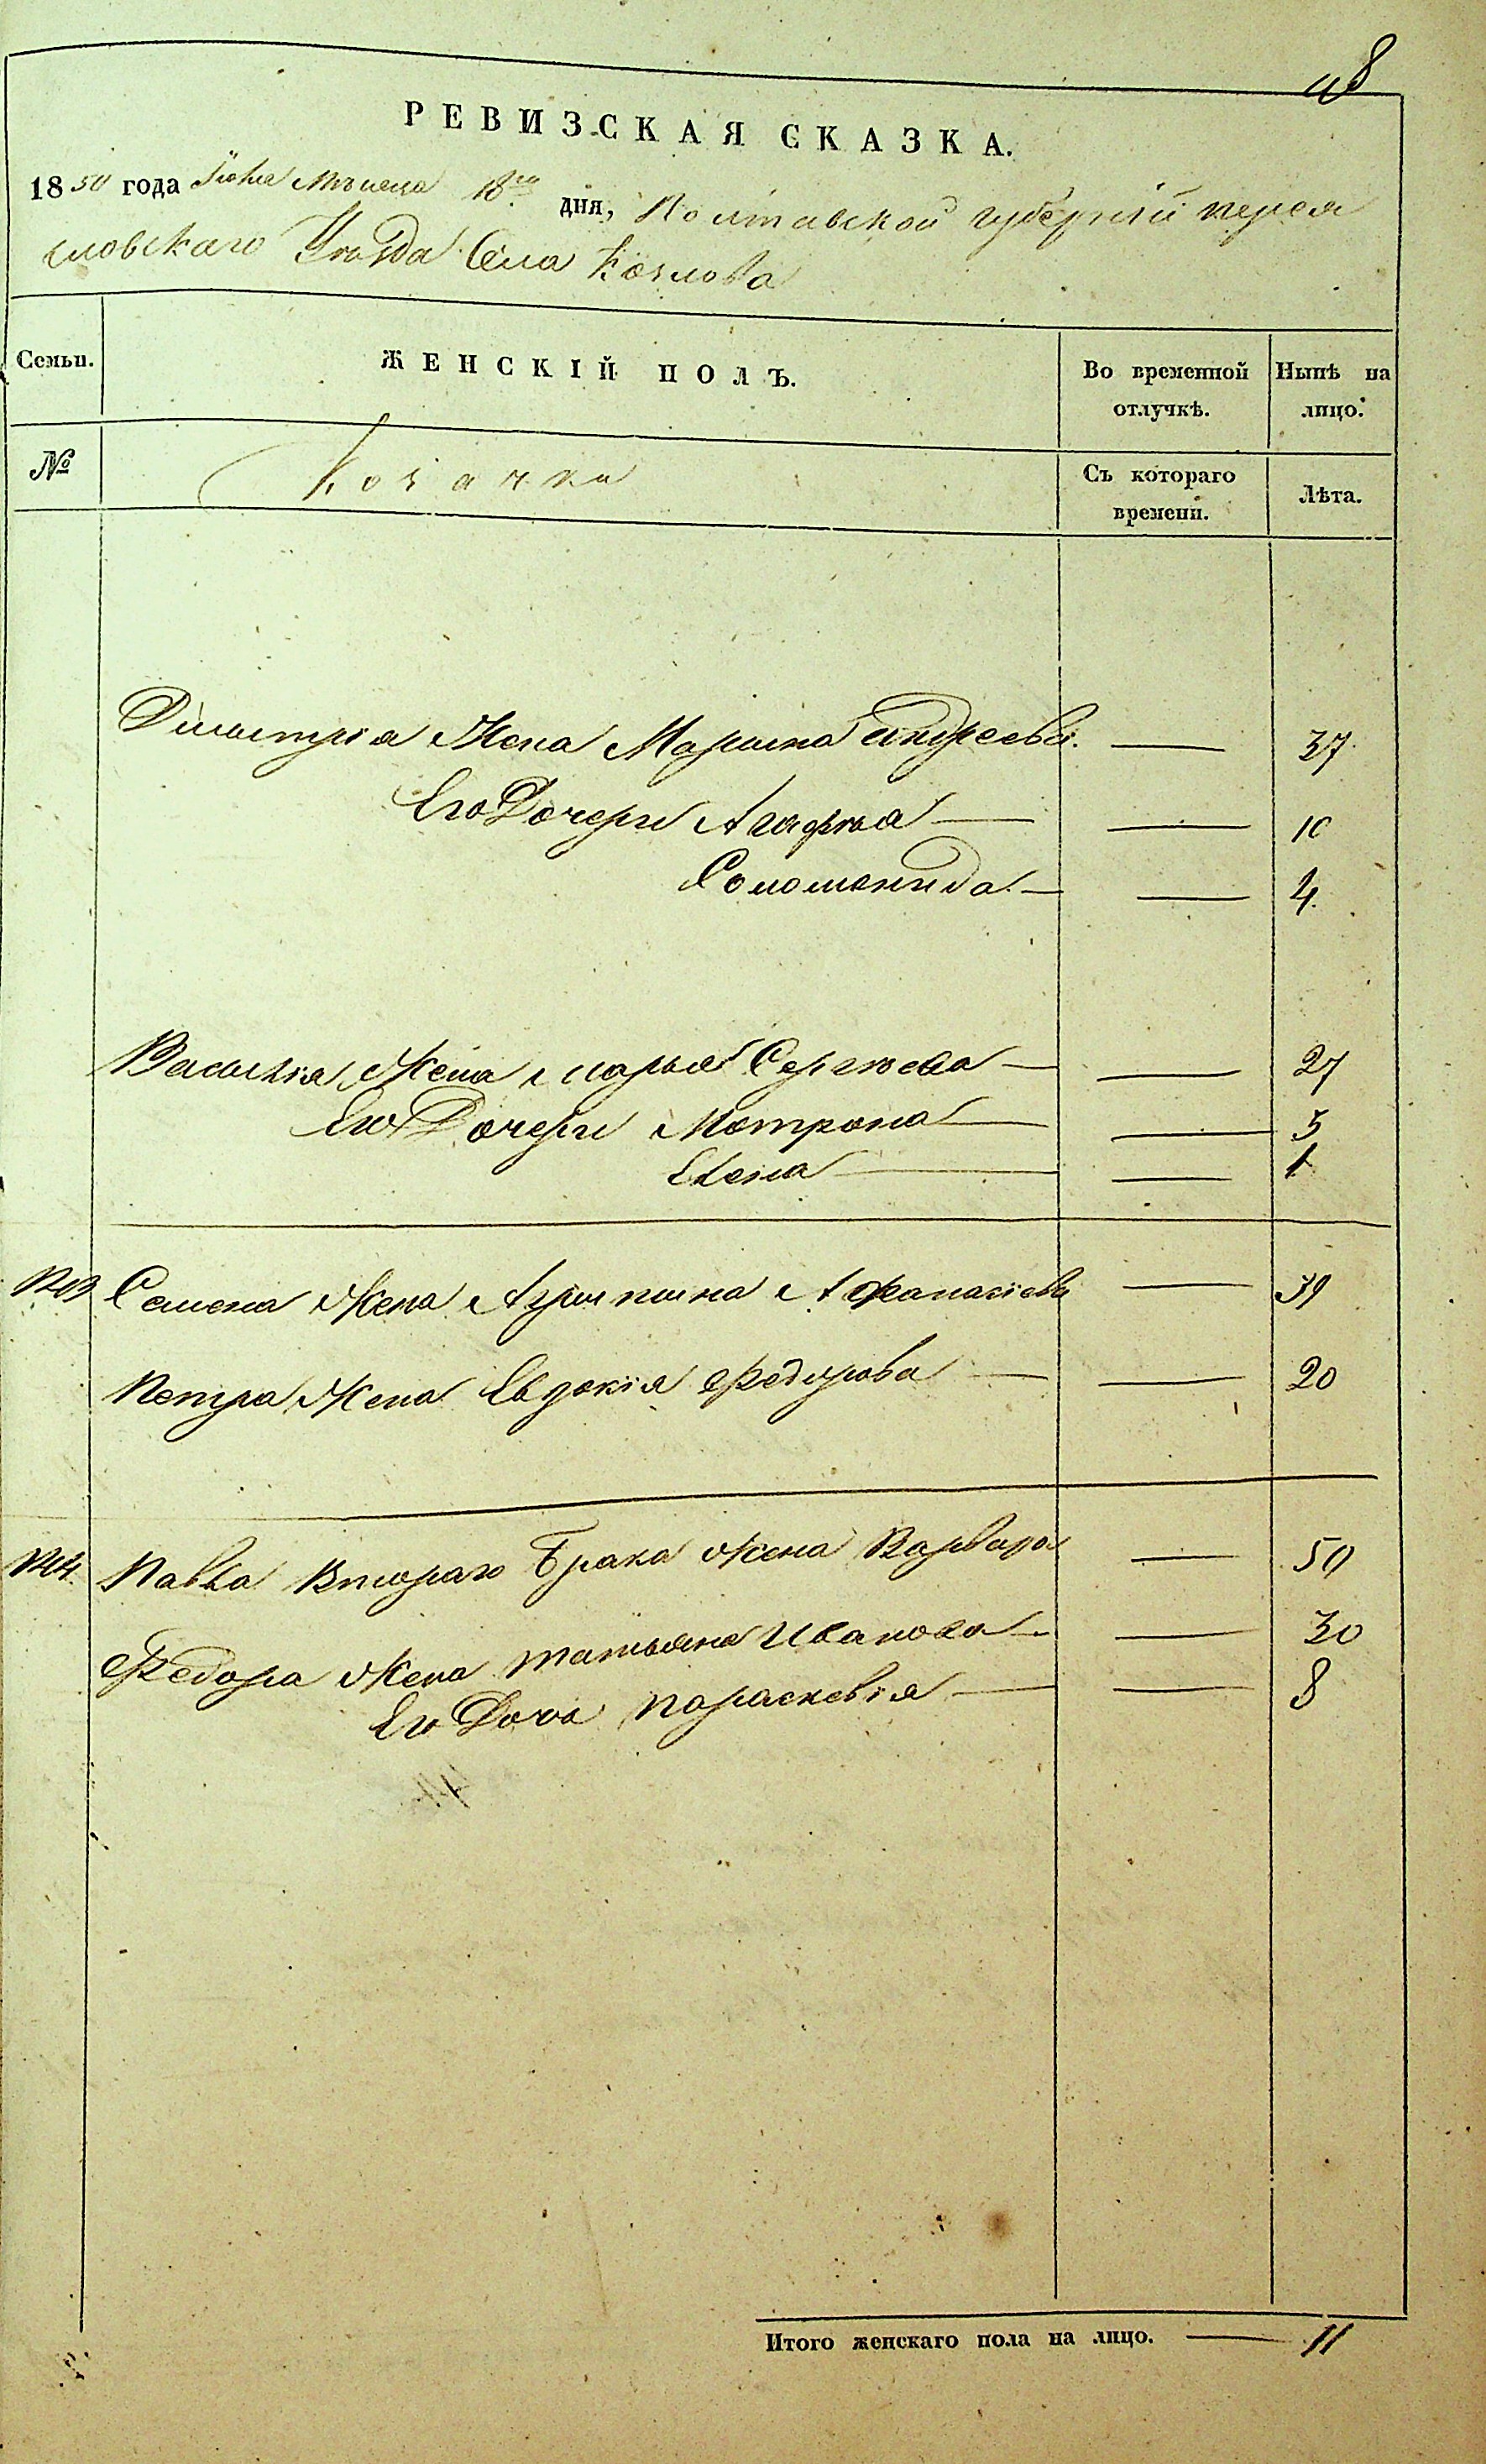 48
РЕВИЗСКАЯ СКАЗКА.
1850 года Июня мѣсяца 18го дня, Полтавской губерніи Перея
словскаго Уѣзда Села Козлова
Семьи.
ЖЕНСКІЙ ПОЛЪ.
Во временной
отлучкѣ.
Нынѣ на
лицо.
№
Козачки
Съ котораго
времени.
Лѣта.
Димитрія Жена Марина Андреева. — 37
Его Дочери Агафья — — 10
Соломонида — — 4.
Василія Жена Марья Сергѣева — — 27
Его Дочери Мотрона — — 5
Елена — — 1
Семена Жена Агрипина Афанасіева — 39
Петра Жена Евдокія Федорова — — 20
Павла Втораго Брака Жена Варвара — 50
Федора Жена татьяна Иванова — — 30
Его Дочь параскевія — — 8
Итого женскаго пола на лицо. — 11